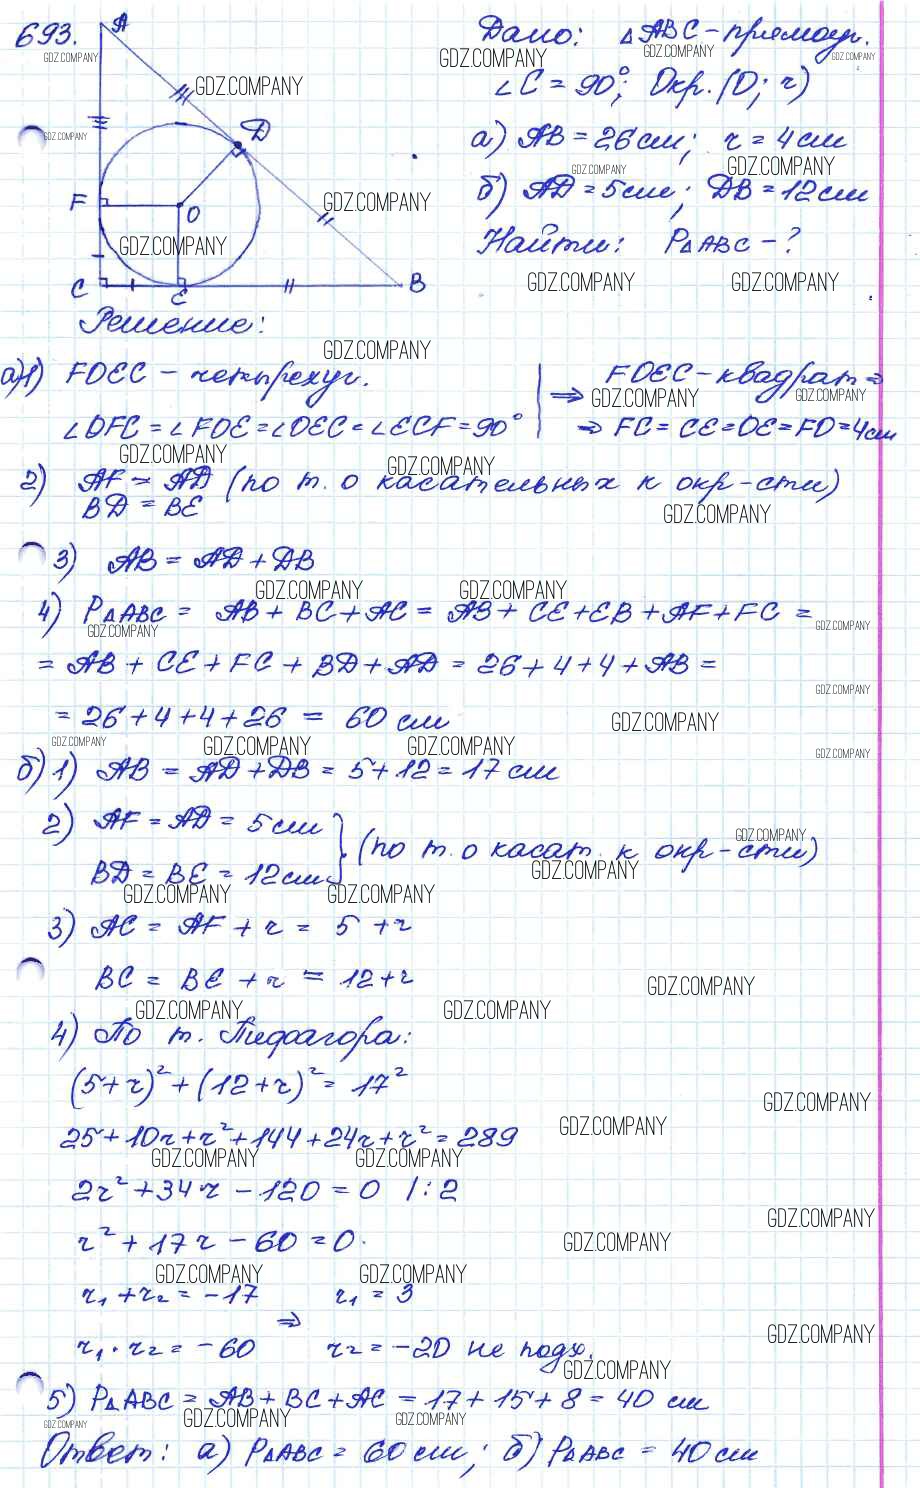 693.
A
D
F
O
C
E
B
Дано: △ABC - прямоуг.
∠C = 90°; Окр. (O; r)
а) AB = 26 см; r = 4 см
б) AD = 5 см; DB = 12 см
Найти: P△ABC - ?
Решение:
а) 1) FOEC - четырехуг. ⇒ FOEC - квадрат ⇒
∠OFC = ∠FOE = ∠OEC = ∠ECF = 90° ⇒ FC = CE = OE = FO = 4 см
2) AF = AD (по т. о касательных к окр-сти)
BD = BE
3) AB = AD + DB
4) P△ABC = AB + BC + AC = AB + CE + EB + AF + FC =
= AB + CE + FC + BD + AD = 26 + 4 + 4 + AB =
= 26 + 4 + 4 + 26 = 60 см
б) 1) AB = AD + DB = 5 + 12 = 17 см
2) AF = AD = 5 см
BD = BE = 12 см } (по т. о касат. к окр-сти)
3) AC = AF + r = 5 + r
BC = BE + r = 12 + r
4) По т. Пифагора:
(5 + r)² + (12 + r)² = 17²
25 + 10r + r² + 144 + 24r + r² = 289
2r² + 34r - 120 = 0 /:2
r² + 17r - 60 = 0.
r₁ + r₂ = -17 ⇒ r₁ = 3
r₁ · r₂ = -60 r₂ = -20 не подх.
5) P△ABC = AB + BC + AC = 17 + 15 + 8 = 40 см
Ответ: а) P△ABC = 60 см; б) P△ABC = 40 см
GDZ.COMPANY